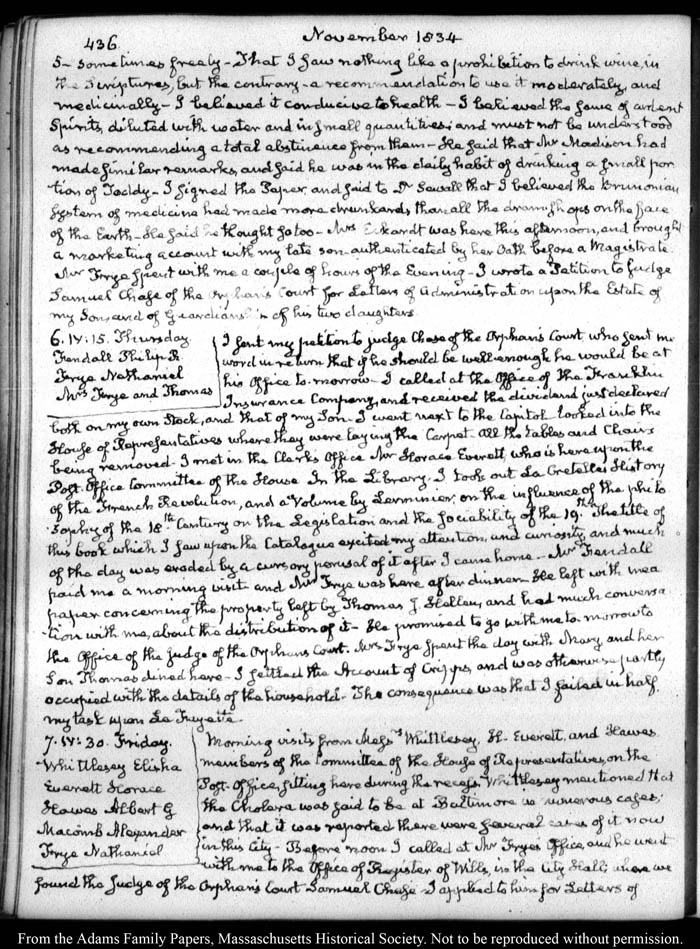 436
November 1834
5- sometimes freely - That I saw nothing like a prohibition to drink wine, in
the Scriptures, but the contrary - a recommendation to use it moderately, and
medicinally - I believed it conducive to health - I believed the same of ardent
Spirits, diluted with water and in small quantities; and must not be understood
as recommending a total abstinence from them - He said that Mr Madison had
made similar remarks, and said he was in the daily habit of drinking a small por
tion of Toddy - I signed the Paper, and said to Dr Sewall that I believed the Brunonian
System of medicine had made more drunkards than all the dramshops on the face
of the Earth - He said he thought so too - Mrs Eckardt was here this afternoon, and brought
a marketing account with my late son - authenticated by her Oath before a Magistrate
Mr Frye spent with me a couple of hours of the Evening - I wrote a Petition to Judge
Samuel Chase of the Orphan's Court for Letters of Administration upon the Estate of
my Son, and of Guardianship of his two daughters
6. IV:15. Thursday
Fendall Philip R
Frye Nathaniel
Mrs Frye and Thomas
I sent my petition to judge Chase of the Orphan's Court, who sent me
word in return that if he should be well enough he would be at
his Office to-morrow - I called at the Office of the Franklin
Insurance Company, and received the dividend just declared
both on my own Stock, and that of my Son. I went next to the Capitol. Looked into the
House of Representatives where they were laying the Carpet - all the tables and Chairs
being removed - I met in the Clerk's Office Mr Horace Everett, who is here upon the
Post-Office Committee of the House. In the Library, I took out La Cretelle's History
of the French Revolution, and a Volume by Lerminier, on the influence of the philo
sophy of the 18th Century on the Legislation and the sociability of the 19th. The title of
this book which I saw upon the Catalogue excited my attention, and curiosity, and much
of the day was evaded by a cursory perusal of it after I came home - Mr Fendall
paid me a morning visit and Mr Frye was here after dinner. He left with me a
paper concerning the property left by Thomas J. Hellen, and had much conversa
tion with me, about the distribution of it - He promised to go with me to-morrow to
the Office of the Judge of the Orphans Court. Mrs Frye spent the day with Mary and her
Son Thomas dined here - I settled the Account of Cripps, and was otherwise partly
occupied with the details of the household - The consequence was that I failed in half
my task upon La Fayette.
7. IV:30. Friday.
Whittlesey Elisha
Everett Horace
Hawes Albert G
Macomb Alexander
Frye Nathaniel
Morning visits from Messrs Whittlesey, H. Everett, and Hawes
members of the Committee of the House of Representatives, on the
Post-Office, sitting here during the recess. Whittlesey mentioned that
the Cholera was said to be at Baltimore in numerous cases;
and that it was reported there were several cases of it now
in this City - Before noon I called at Mr Frye's Office, and he went
with me to the Office of Register of Wills, in the City Hall; where we
found the Judge of the Orphan's Court Samuel Chase - I applied to him for Letters of
From the Adams Family Papers, Massachusetts Historical Society. Not to be reproduced without permission.